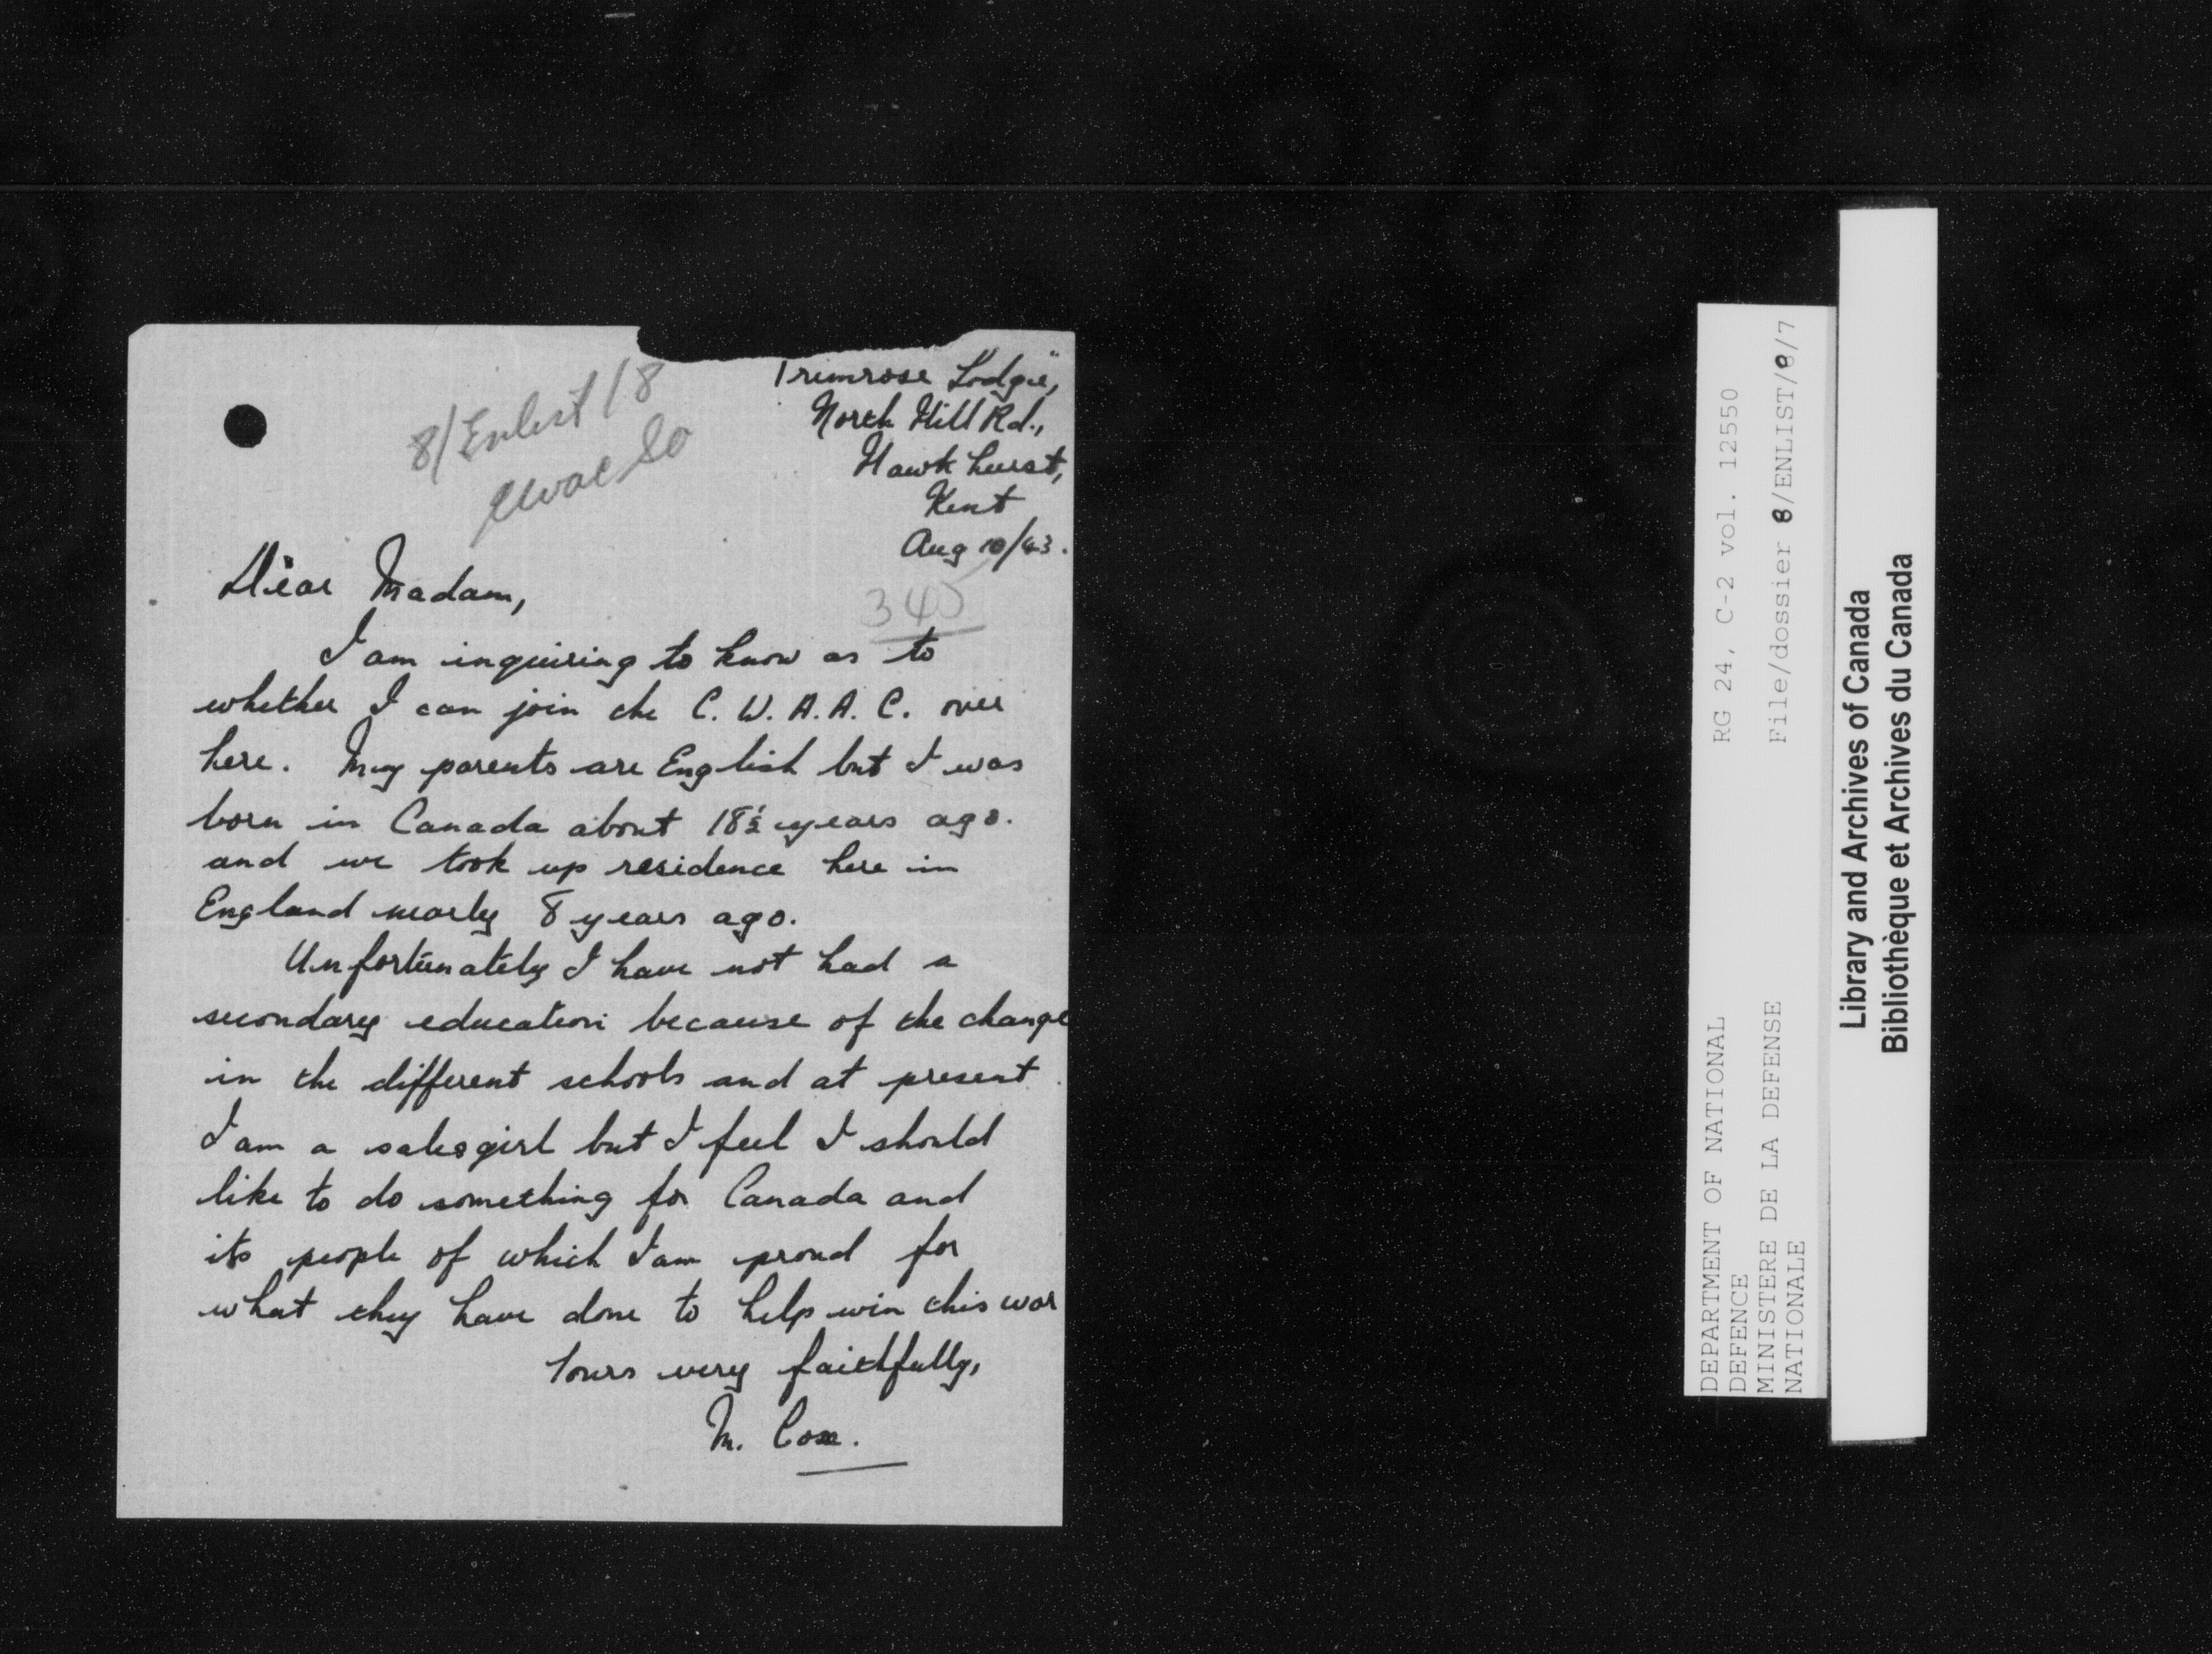 8/Enlist/8
cwac So
Primrose Lodge",
North Hill Rd.,
Hawkhurst,
Kent
Aug 10/43.
345
Dear Madam,
I am inquiring to know as to
whether I can join the C. W. A. A. C. over
here. My parents are English but I was
born in Canada about 18½ years ago.
and we took up residence here in
England nearly 8 years ago.
Unfortunately I have not had a
secondary education because of the change
in the different schools and at present
I am a salesgirl but I feel I should
like to do something for Canada and
its people of which I am proud for
what they have done to help win this war
Yours very faithfully,
M. Cox.
RG 24, C-2 vol. 12550
File/dossier 8/ENLIST/8/7
DEPARTMENT OF NATIONAL
DEFENCE
MINISTERE DE LA DEFENSE
NATIONALE
Library and Archives of Canada
Bibliothèque et Archives du Canada